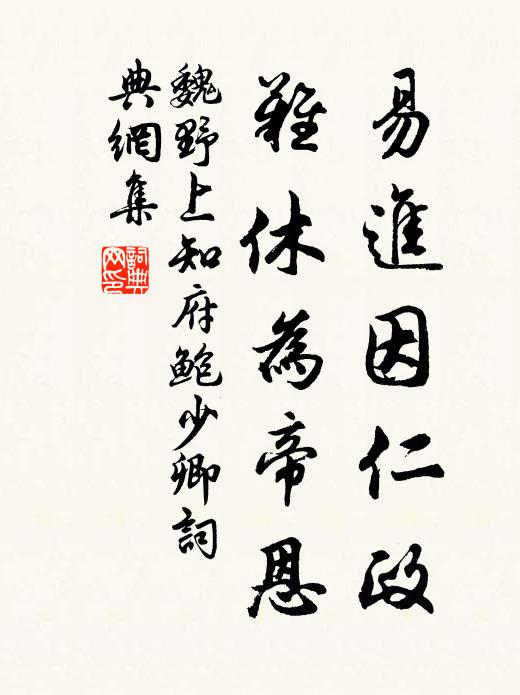 易進因仁政
難休為帝恩
魏野上知府鮑少卿詞
典網集
詞典
网印